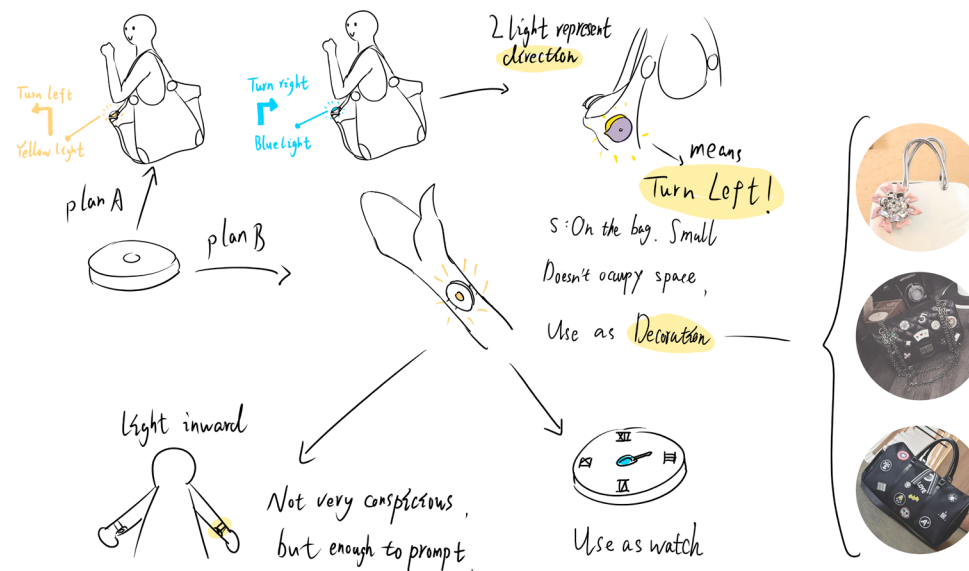 Turn left
Yellow light
Turn right
Blue light
2 light represent
direction
means
Turn Left!
plan A
plan B
S: On the bag. Small
Doesn't ocupy space,
Use as Decoration
Light inward
Not very conspicious,
but enough to prompt.
XII
III
VI
IX
Use as watch